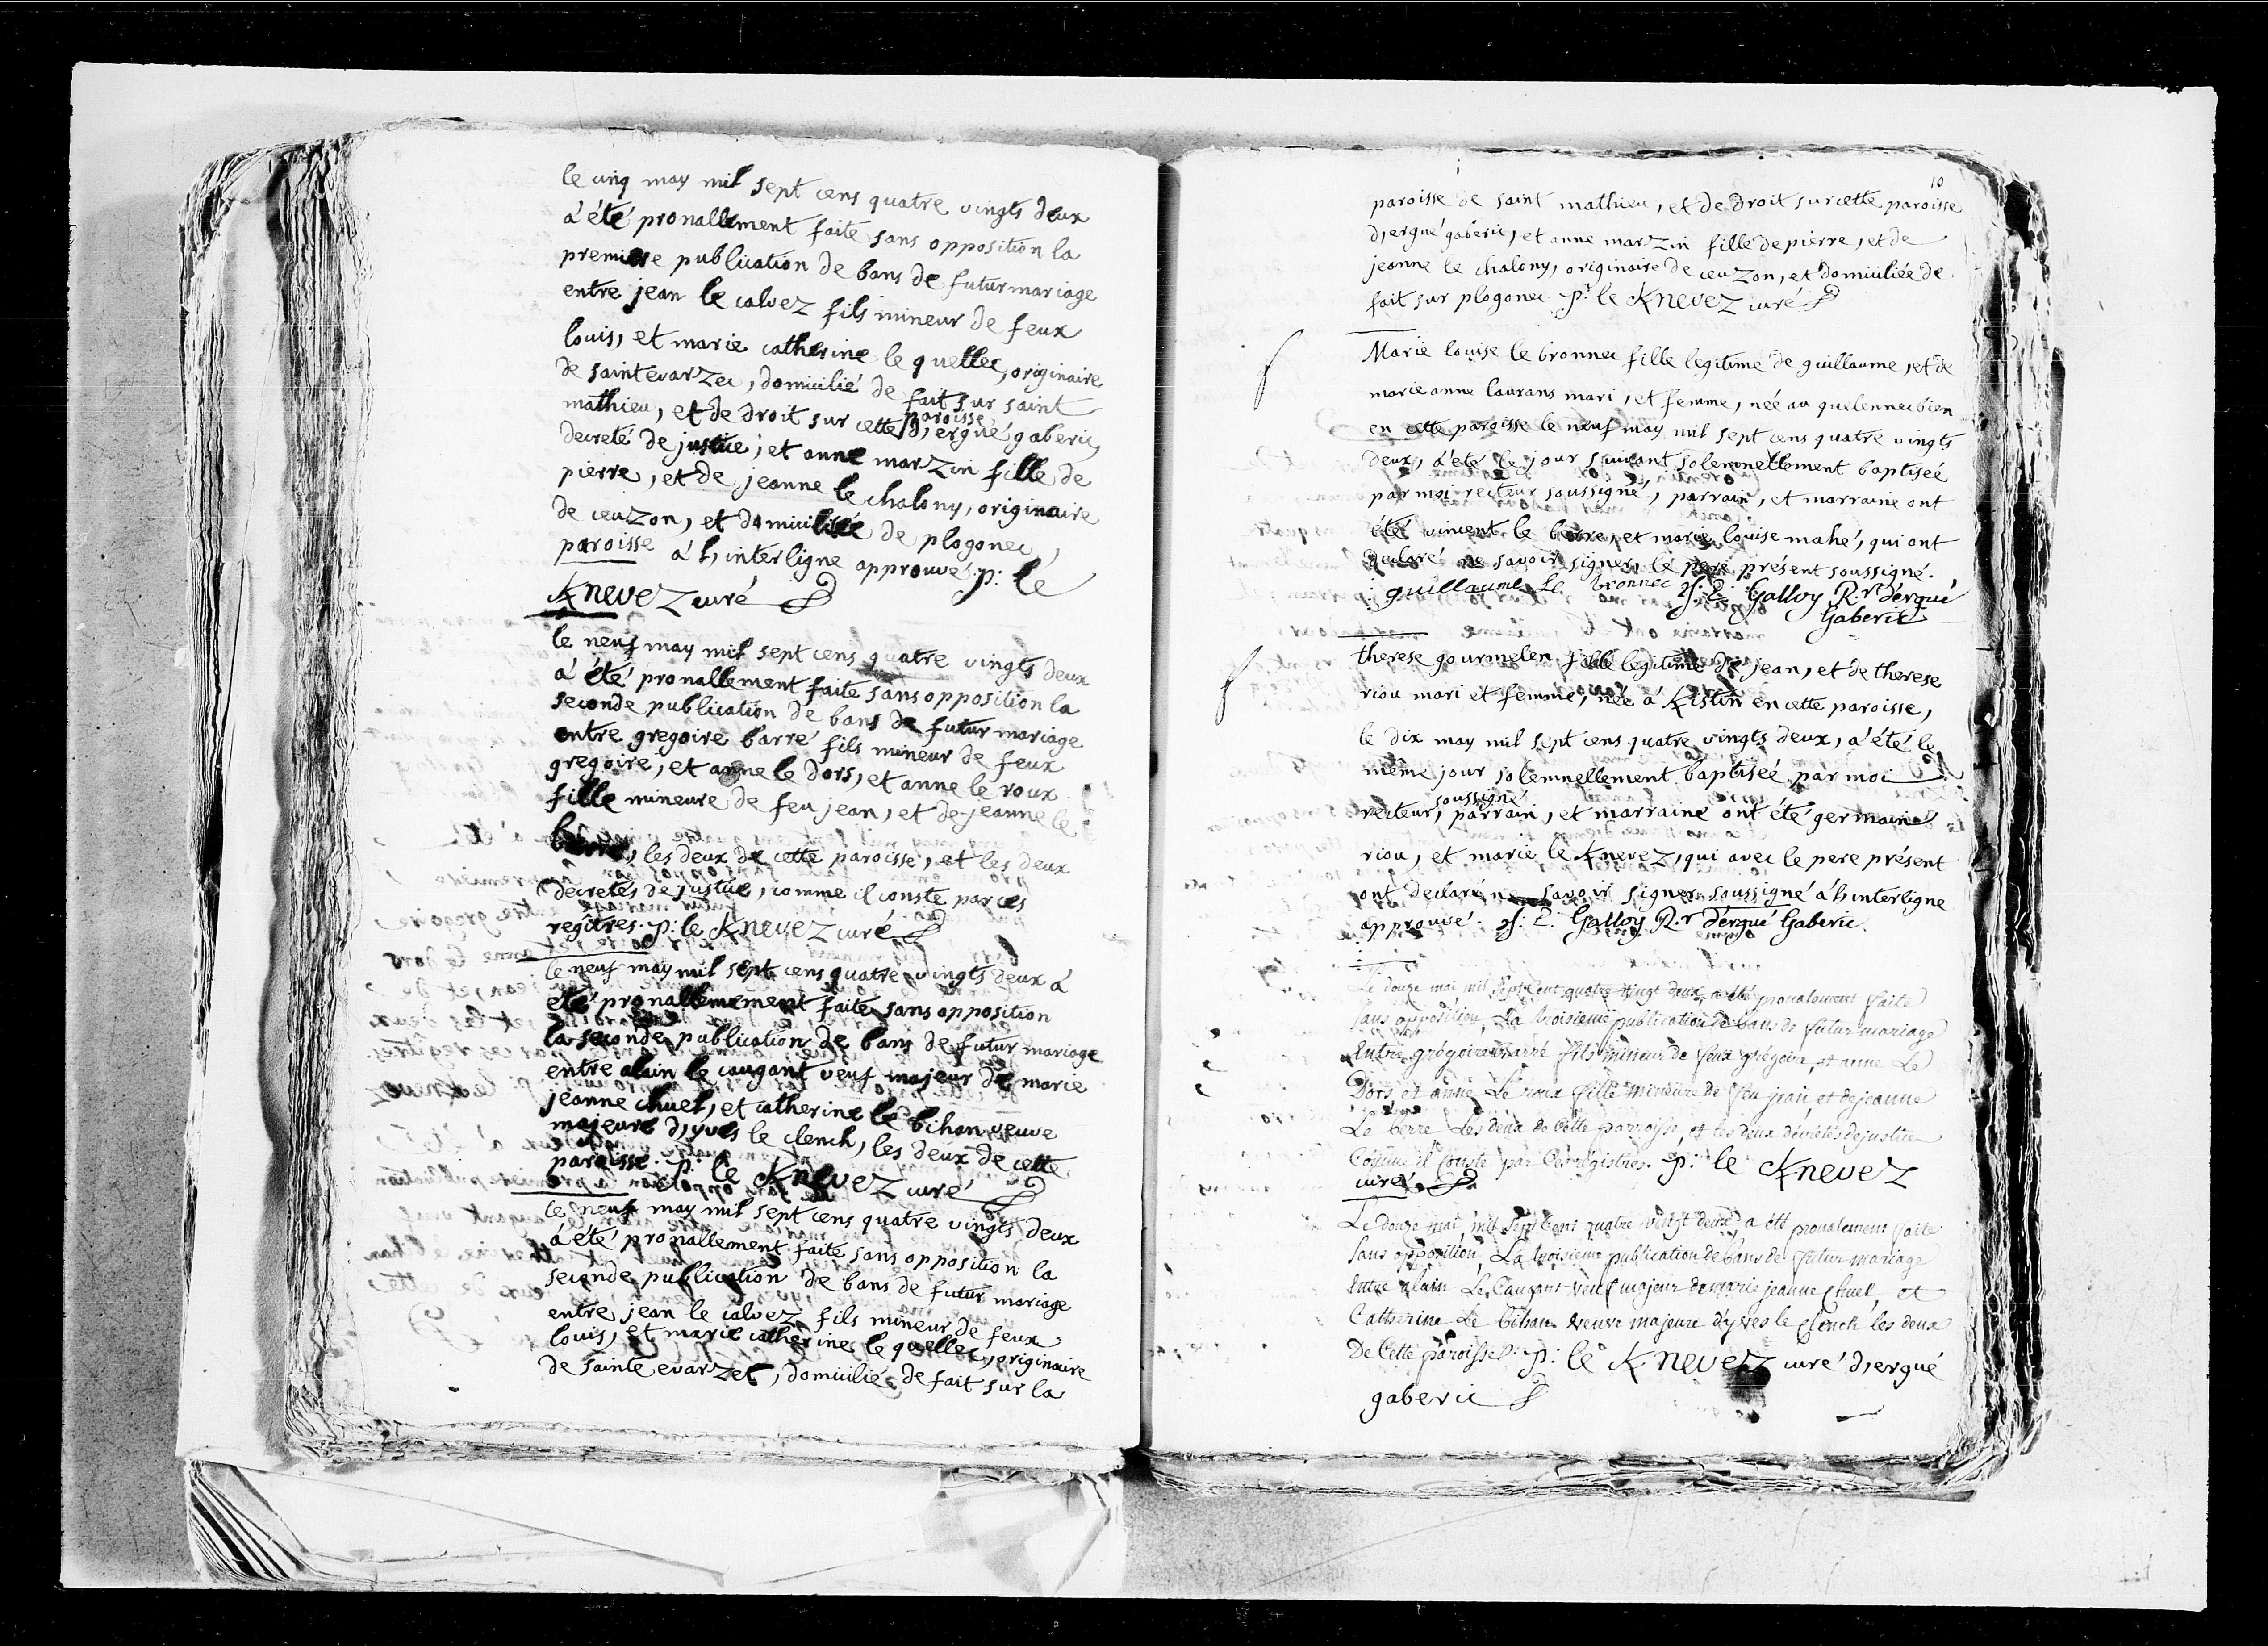 le cinq may mil sept cens quatre vingts deux
a' été pronallement faite sans opposition la
premiere publication de bans de futur mariage
entre jean le calvez fils mineur de feux
louis, et marie catherine le quellec, originaire
de saintevarzec, domicilié de fait sur saint
mathieu, et de droit sur cette paroisse d'ergué gaberic,
decreté de justice, et anne marzin fille de
pierre, et de jeanne le chalony, originaire
de ceuzon, et domiciliée de plogonec,
paroisse a' l'interligne approuvé. p: le
Knevez curé
le neuf may mil sept cens quatre vingts deux
a' été pronallement faite sans opposition la
seconde publication de bans de futur mariage
entre gregoire barré fils mineur de feux
gregoire, et anne le dors, et anne le roux
fille mineure de feu jean, et de jeanne le
berre, les deux de cette paroisse, et les deux
decretés de justice, comme il conste par ces
regitres. p: le Knevez curé
le neuf may mil sept cens quatre vingts deux a'
été pronallemement faite sans opposition
la seconde publication de bans de futur mariage
entre alain le caugant veuf majeur de marie
jeanne chuel, et catherine le bihan veuve
majeure d'yves le clench, les deux de cette
paroisse. p: le Knevez curé
le neuf may mil sept cens quatre vingts deux
a' été pronallement faite sans opposition la
seconde publication de bans de futur mariage
entre jean le calvez fils mineur de feux
louis, et marie catherine le quellec, originaire
de sainte evarzec, domicilié de fait sur la
10
paroisse de saint mathieu, et de droit sur cette paroisse
d'ergué gaberic, et anne marzin fille de pierre, et de
jeanne le chalony, originaire de ceuzon, et domiciliée de
fait sur plogonec. p: le Knevez curé
Marie louise le bronnec fille legitime de guillaume, et de
marie anne laurans mari, et femme, née au quelennec bien
en cette paroisse le neuf may mil sept cens quatre vingts
deux, a' été le jour suivant solemnellement baptiseé
par moi recteur soussigné, parrain, et marraine ont
été vincent le berre, et marie louise mahé, qui ont
declaré ne savoir signer, le pere présent soussigné.
guillaume Le bronnec Galloy R.r d'ergué
Gaberic
therese gourmelen fille legitime de jean, et de therese
riou mari et femme, née a' Kistin en cette paroisse,
le dix may mil sept cens quatre vingts deux, a' été le
même jour solemnellement baptiseé par moi
recteur, soussigné parrain, et marraine ont été germain
riou, et marie le Knevez, qui avec le pere présent
ont declaré ne savoir signer. soussigné a' l'interligne
approuvé. Galloy R.r d'ergué Gaberic.
Le douze mai mil sept cent quatre vingt deux, a été pronalement faite
sans opposition, La troisieme publication de bans de futur mariage
Entre grégoire barré fils mineur de feux grégoire, et anne Le
Dors, et anne Le roux fille mineure de feu jean et de jeanne
Le berre Les deux de Cette parroisse, et les deux décrétés de justice
Comme il conste par Ces registres. p: le Knevez
curé
Le douze mai mil sept cent quatre vingt deux, a été pronalement faite
sans opposition, La troisieme publication de bans de futur mariage
Entre alain Le Caugant veuf majeur de marie jeanne Chuel, et
Catherine Le bihan veuve majeure d'yves le Clench les deux
De Cette paroisse. p: le Knevez curé d'ergué
gaberic